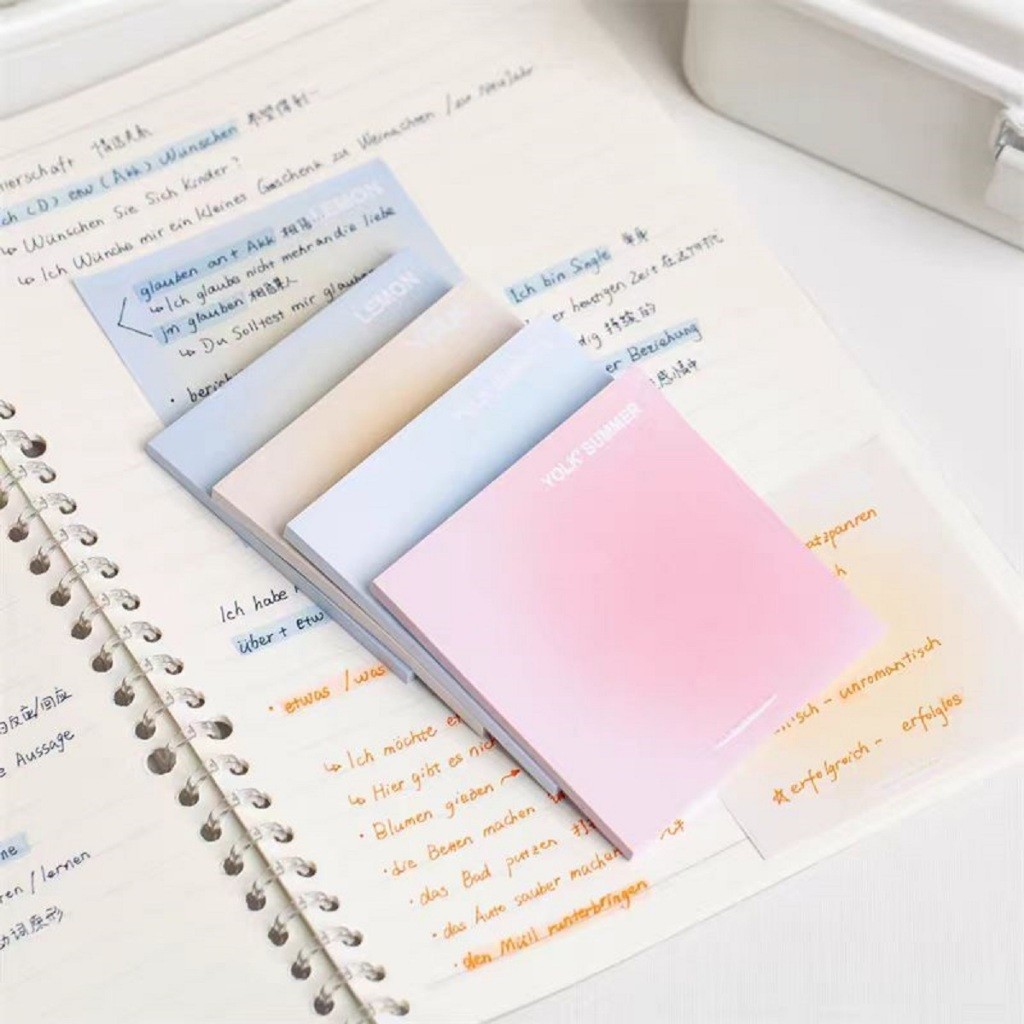 ierschaft
ch (D) etw (Akk) Wünschen 希望得到一
↳ Wünschen Sie Sich Kinder?
↳ Ich Wünche mir ein kleines Geschenk zu Weinachten / zur Neu Jahr
LEMON
glauben an + Akk 相信
↳ Ich glaube nicht mehr an die liebe
jm glauben 相信某人
↳ Du Solltest mir glauben
LEMON
YOLK' SUMMER
Ich bin Single 单身
er heutigen Zeit 在这个时代
dig 持续的
er Beziehung
Ich habe
über + etw
• etwas / was
↳ Ich möchte et
↳ Hier gibt es nic
• Blumen gießen →
• die Betten machen
• das Bad putzen
• das Auto sauber machen
• den Müll runterbringen
atzpannren
ch
isch - unromantisch
☆ erfolgreich - erfolglos
的反应/回应
e Aussage
me
ren / lernen
动词原形